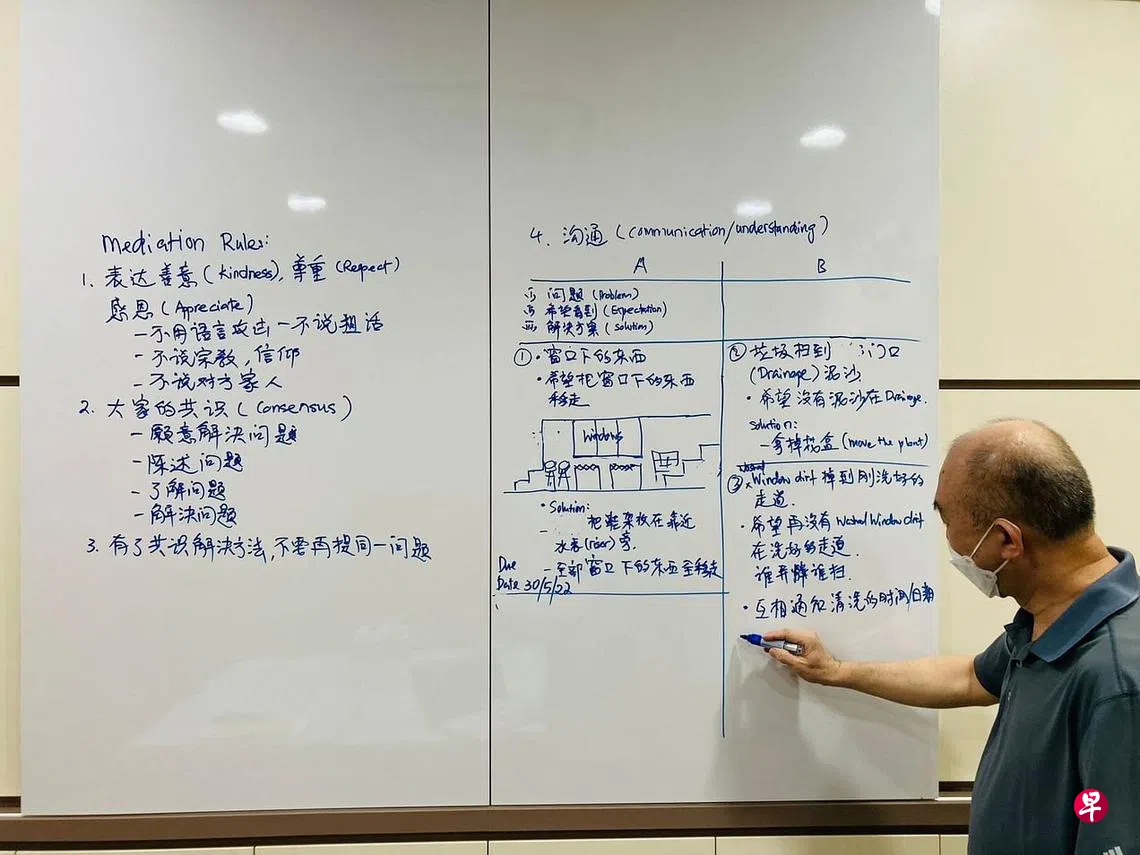 Mediation Rules:
1. 表达善意 (Kindness), 尊重 (Respect)
感恩 (Appreciate)
— 不用语言攻击 — 不说粗话
— 不说宗教, 信仰
— 不说对方家人
2. 大家的共识 (Consensus)
— 愿意解决问题
— 陈述问题
— 了解问题
— 解决问题
3. 有了共识解决方法, 不要再提同一问题
4. 沟通 (Communication/understanding)
A
B
i) 问题 (Problem)
ii) 希望看到 (Expectation)
iii) 解决方案 (Solution)
① • 窗口下的东西
• 希望把窗口下的东西
移走
Windows
• Solution:
— 把鞋架放在靠近
水表 (riser) 旁.
— 全部窗口下的东西全移走
Due
Date 30/5/22
② 垃圾扫到 门口
(Drainage) 泥沙.
• 希望没有泥沙在 Drainage.
Solution:
— 拿掉花盆 (move the plant)
③ Window dirt 掉到刚洗好的
走道.
• 希望再没有 Washed Window dirt
在洗好的走道.
谁弄脏谁扫.
• 互相通知清洗的时间/日期
早